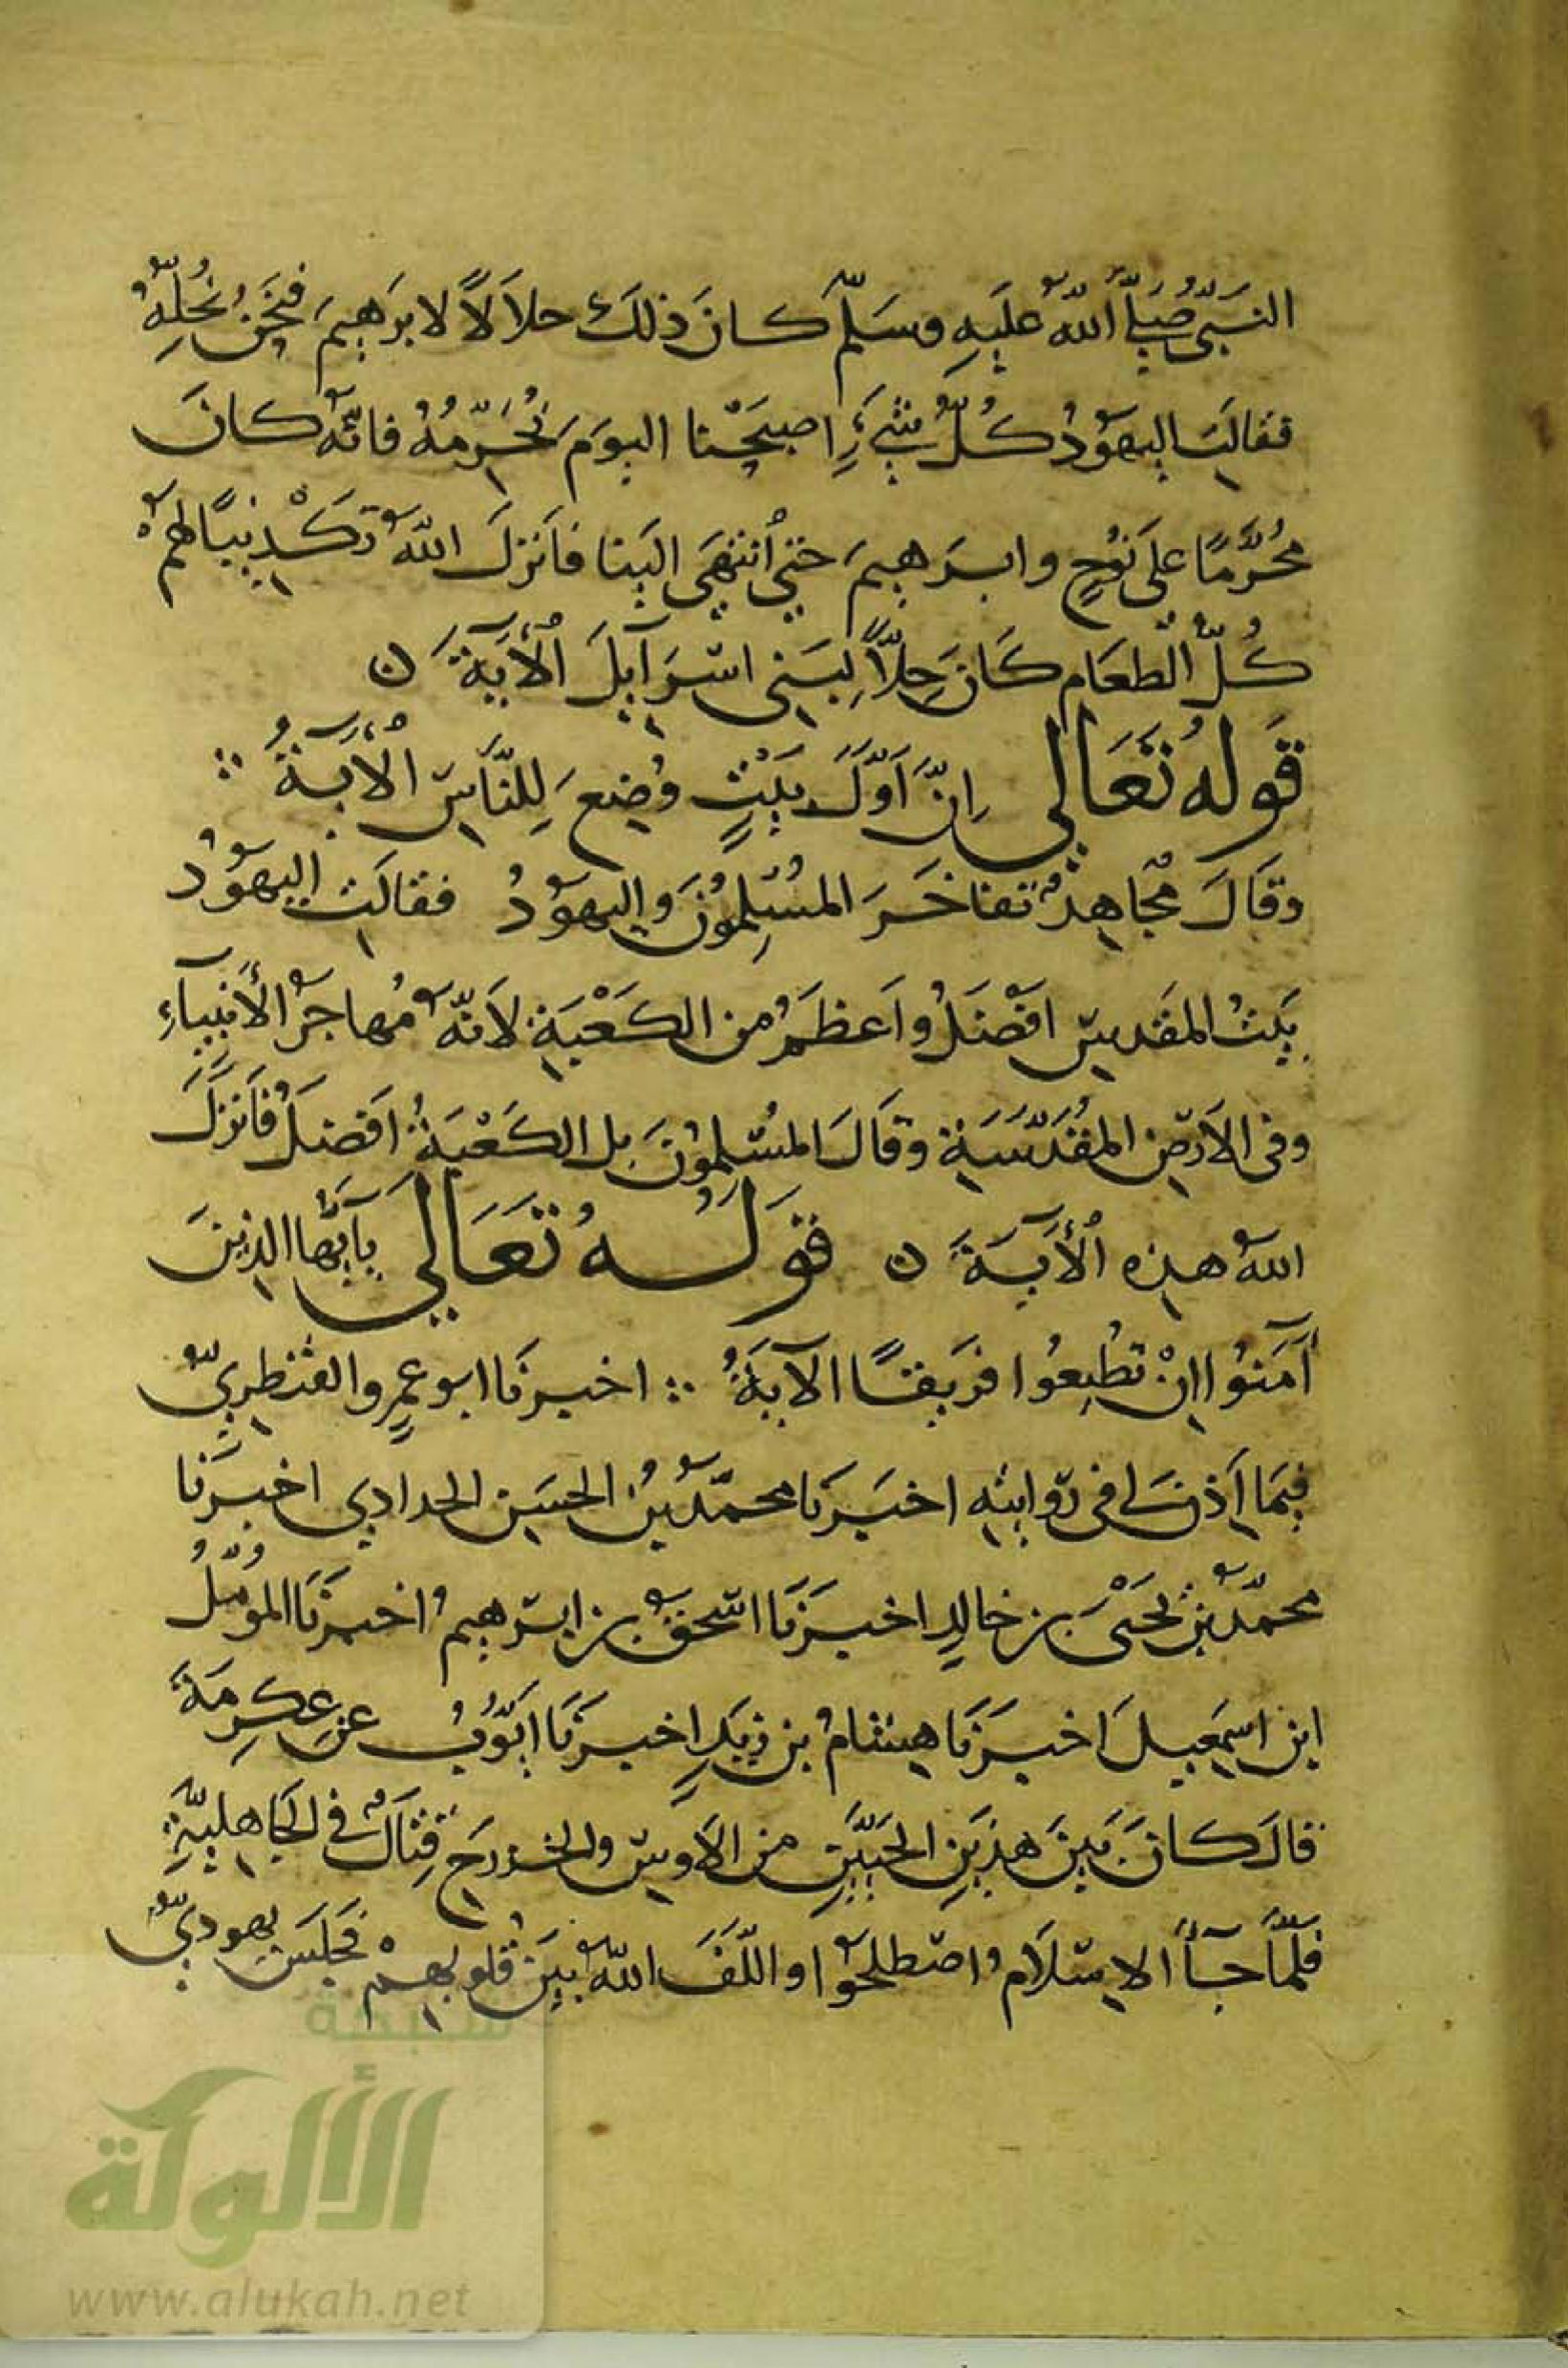 النَّبِيُّ صَلَّى اللّٰهُ عَلَيهِ وسَلّمَ كانَ ذلكَ حلاَلاً لابرَهِيمَ فنَحَنُ نُحِلُّهُ
فقالَتِ اليهوُدُ كُلُّ شَيءٍ اصبَحْنا اليومَ نُحَرِّمُهُ فانّهُ كانَ
مُحَرَّمًا على نوُحٍ وابرَهِيمَ حتي اُنتهَي الَينا فاَنزلَ اللّهُ تكْذِيبًا لهُمْ
كُلُّ الْطعَامِ كَانَ حِلاًّ لِبَنِي اسْرَآيِلَ اْلأيَةَ ن
قَولهُ تَعَالي اِنَّ اَوَّلَ بَيْتٍ وُضِعَ لِلنَّاسِ اْلأيَةُ
وقَالَ مُجاهِدٌ تفاخَرَ المُسْلِمُونَ واليهوُدُ فقالَتِ اليهوُدُ
بَيتُ المقَدِسِ افْضَلُ واَعظَمُ من الكَعْبَةِ لاَنّهُ مُهاجَرُ الأنبِيَآءِ
وفي الاَرْضِ المُقَدّسَةِ وقَالَ المسْلِمُونَ بل الكَعْبَةُ اَفضَلُ فاَنزَلَ
اللهُ هذِهِ اْلأيَةَ ن قَولُهُ تَعَالي يآيّها الذِينَ
آمَنُوا اِنْ تطُيعُوا فرَيقًا الآيَةَ اخبرنَا ابو عمرٍو القنطرِيّ
فيمَا اَذن لى في رِوايتِه اخبَرنَا محمّدُ بنُ الحسَين الحدادي اخبَرنا
محمّدُ بنُ يَحيَى بن خالِدٍ اخبَرنَا اسْحقُ بن ابرْهِيمُ اخبَرنَا المُومّلُ
ابن اسمعِيلَ اخبَرنَا هِشامُ بن زيَدٍ اخبَرنَا ايّوُبُ عَن عِكرِمَةَ
قالَ كانَ بَينَ هذيَنِ الحَيَّينِ من الاَوسِ والخزرجِ قِتالٌ في الجَاهليّةِ
فلمّا جآءَ الاِسْلاَمُ اصْطلحُوا والّفَ اللّهُ بَينَ قُلوبهِمْ فجَلسَ يهوديٌّ
شبكة
الألوكة
www.alukah.net